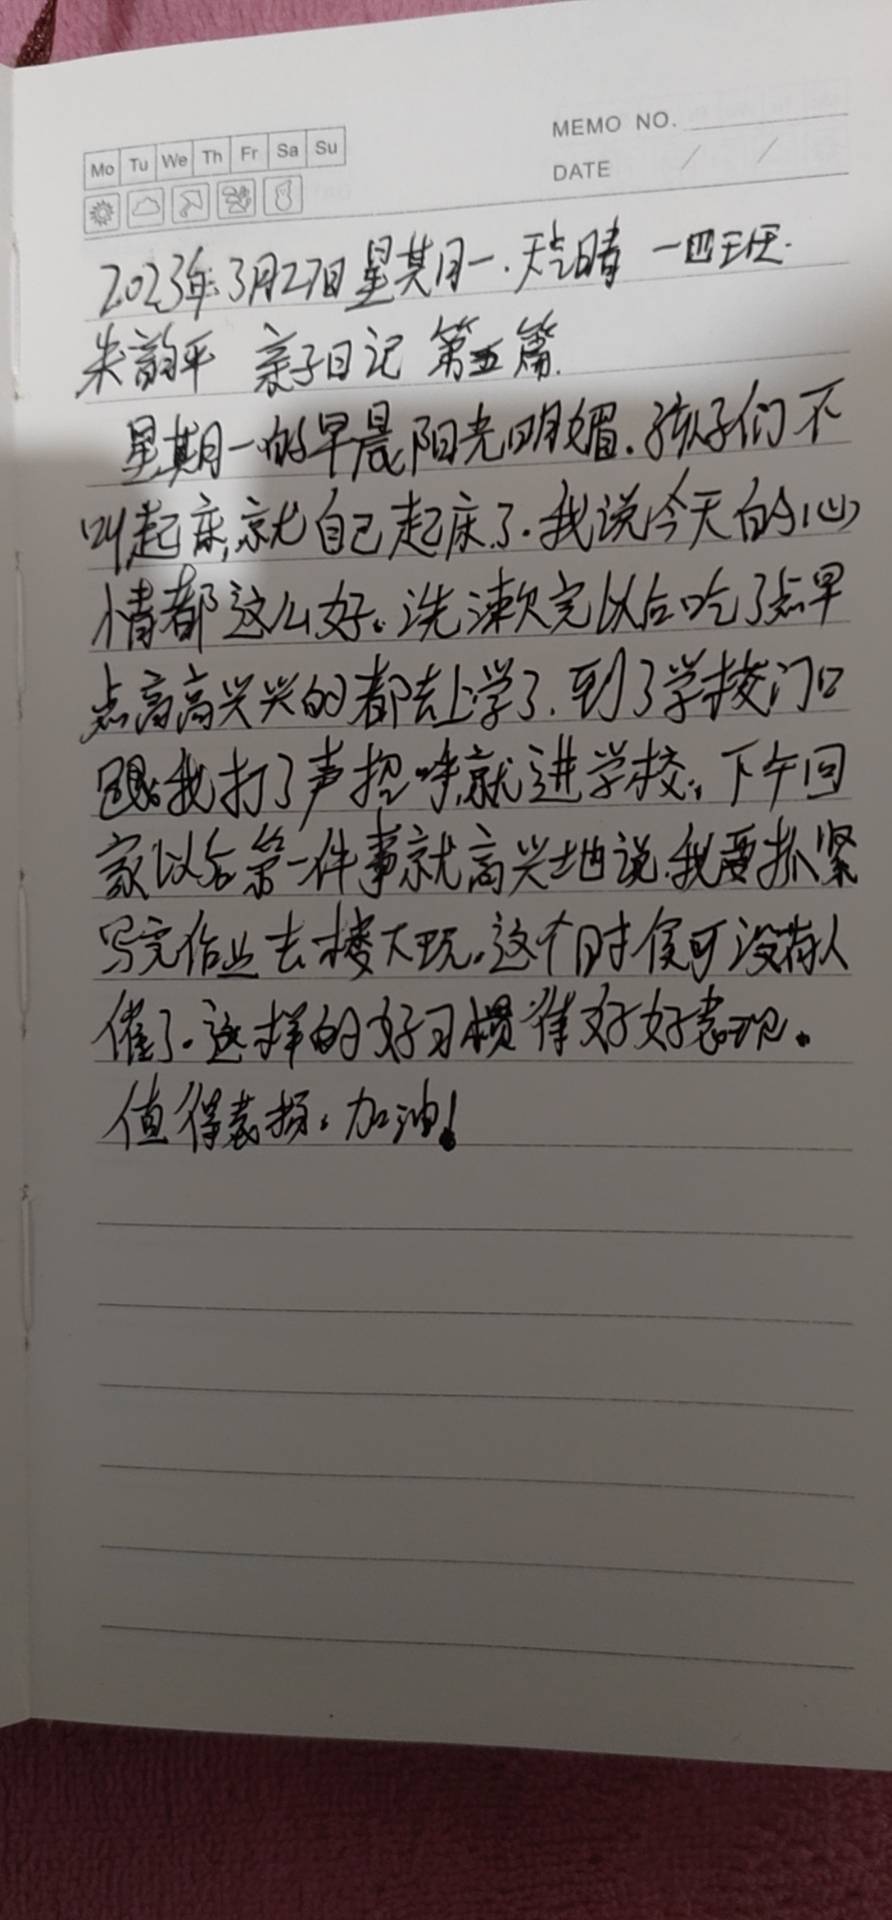 Mo Tu We Th Fr Sa Su
MEMO NO.
DATE / /
2023年3月27日星其月一.天气晴 一四班.
朱韵平 亲子日记 第五篇.
星期一的早晨阳光明媚.孩子们不
叫起床,就自己起床了.我说今天的心
情都这么好。洗漱完以后吃了点早
点高高兴兴的都去上学了.到了学校门口
跟我打了声招呼,就进学校.下午回
家以后第一件事就高兴地说.我要抓紧
写完作业去楼下玩。这个时侯可没有人
催了.这样的好习惯 好好表现。
值得表扬.加油!